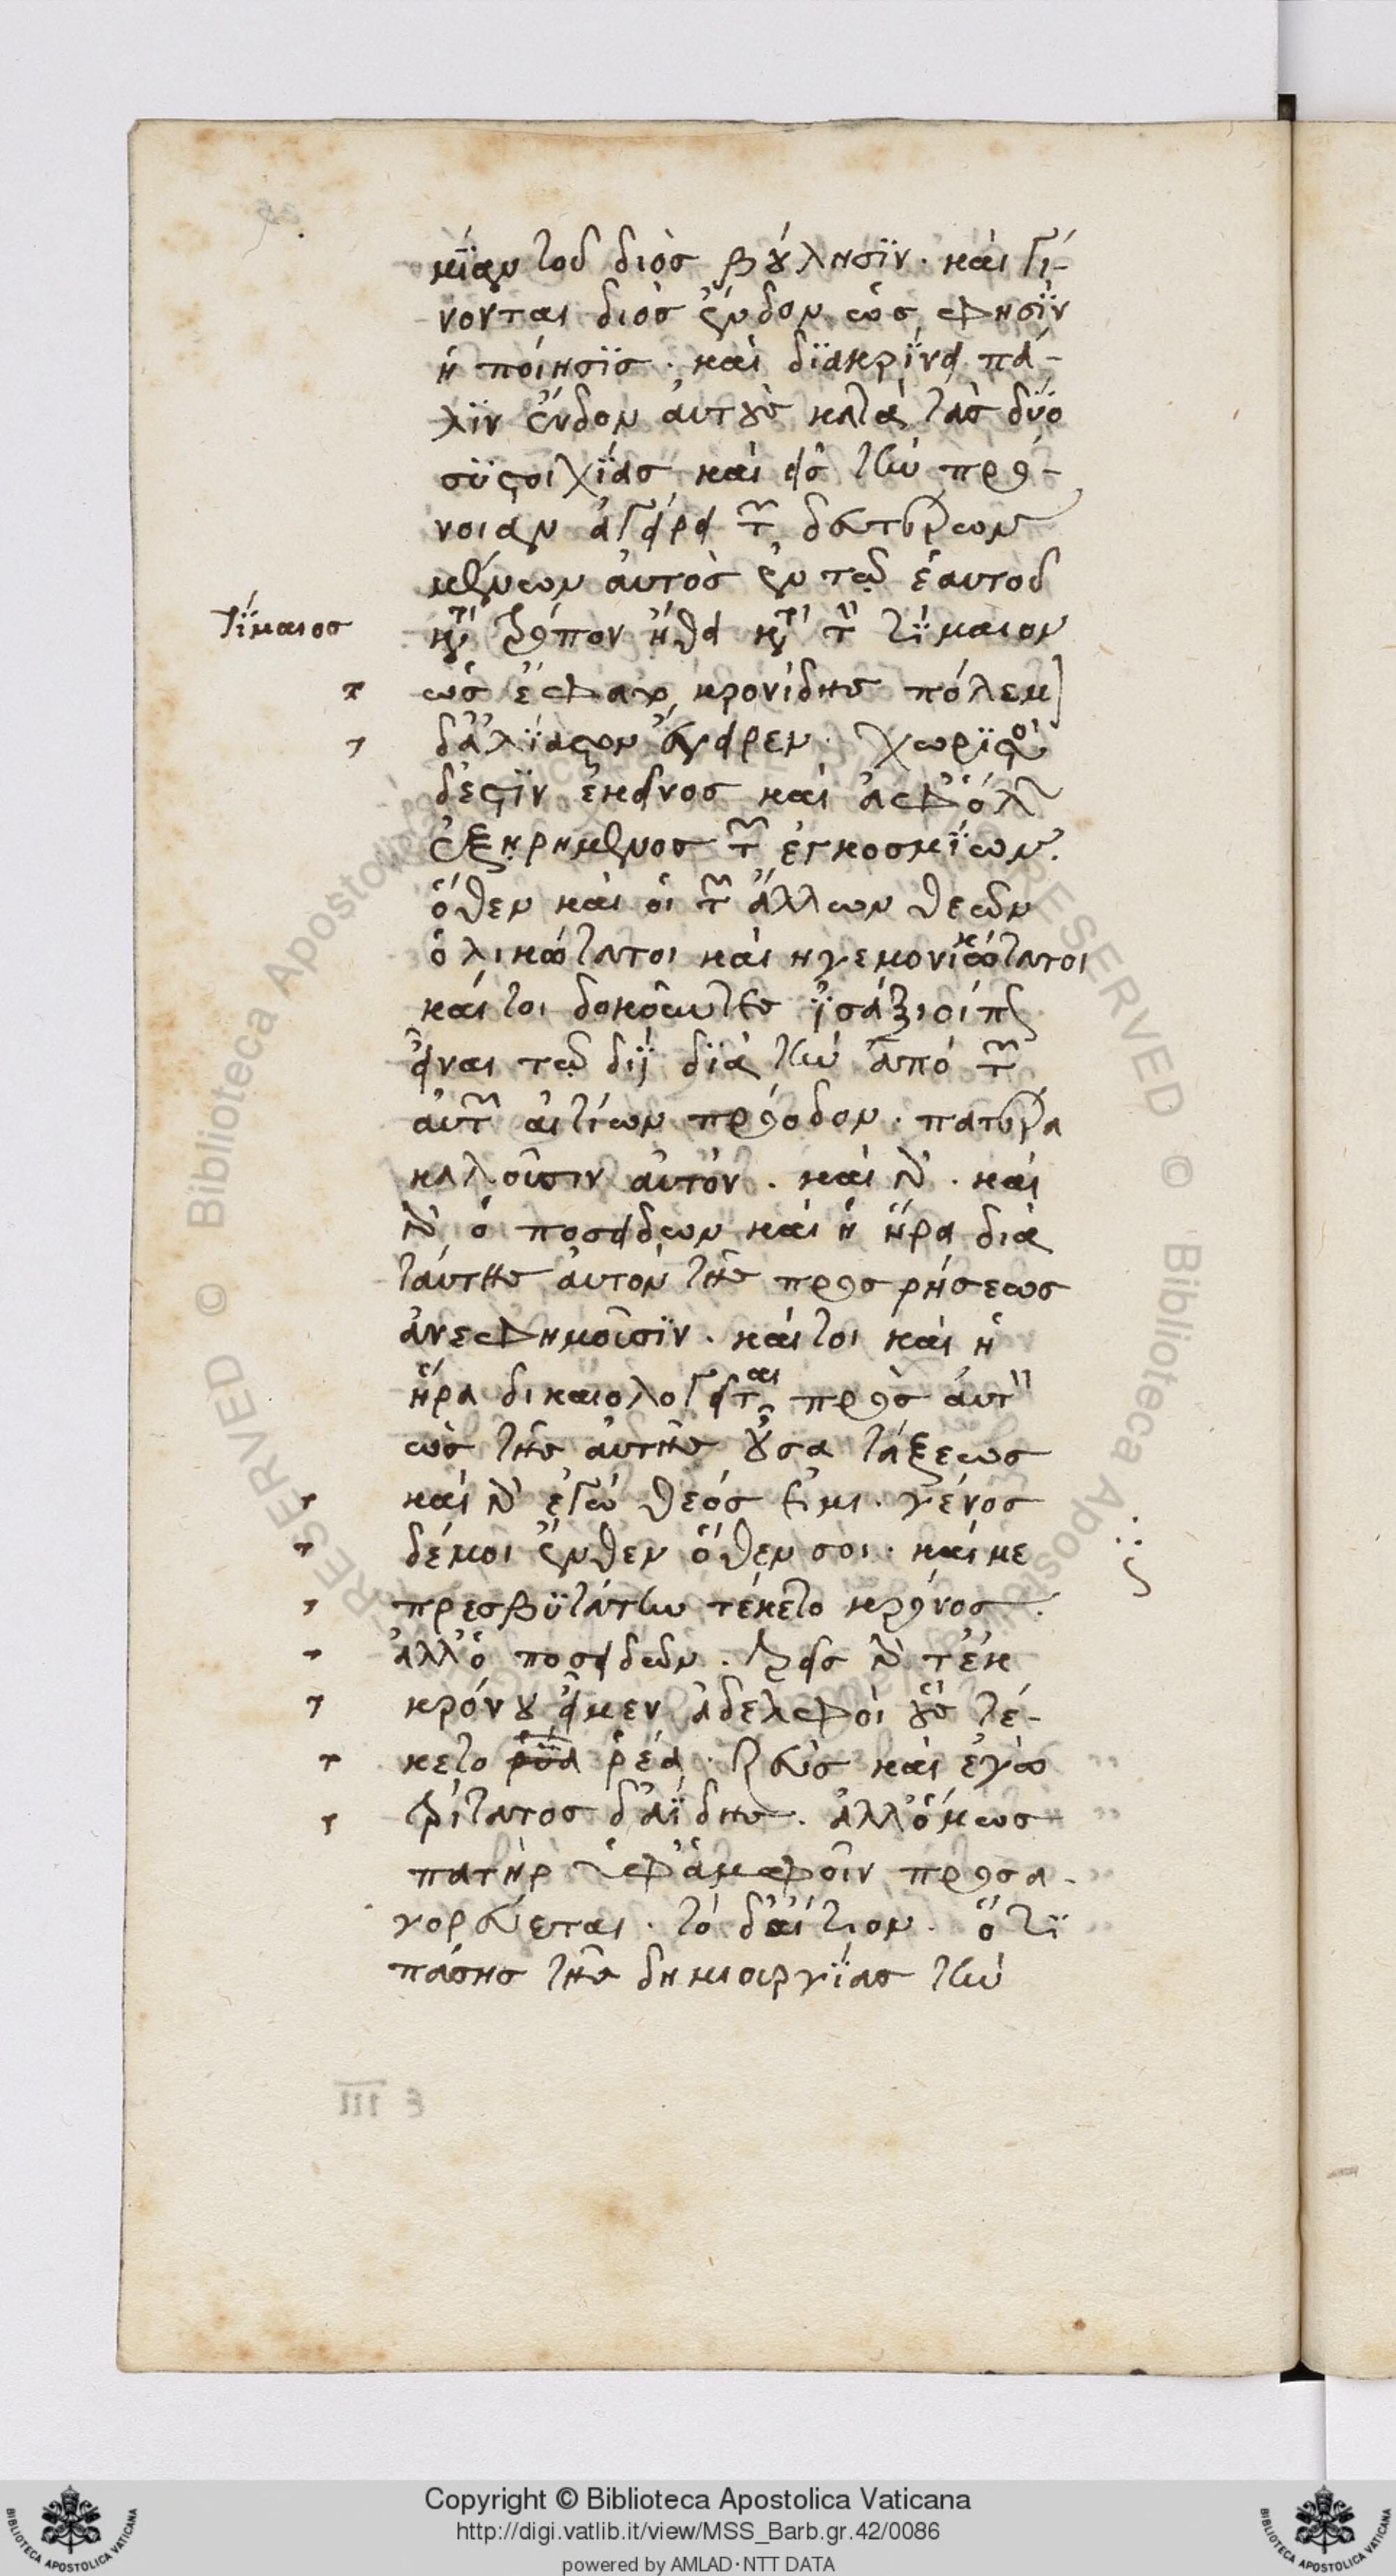 μίαν τοῦ διὸς βούλησϊν. καὶ γί-
νονται διὸς ἔνδον ὡς φησὶν
ἡ ποίησϊς. καὶ δϊακρίνει πά-
λϊν ἔνδον αὐτοὺς κατὰ τὰς δύο
συστοιχίας καὶ εἰς τὴν πρό-
νοιαν ἀγείρει τῶν δευτέρων
μένων αὐτὸς ἐν τῷ ἑαυτοῦ
Τίμαιος
κατὰ τρόπον ἤθει κατὰ τὸν τίμαιον
ὡς ἔφατο κρονίδης πόλεμ
δ' ἀλίαστον ἔγειρεν. χωριστὸς
δ' ἐστὶν ἐκεῖνος καὶ ἀφ' ὅλ
ἐξῃρημένος τῶν ἐγκοσμίων.
ὅθεν καὶ οἱ τῶν ἄλλων θεῶν
ὁλικώτατοι καὶ ἡγεμονικώτατοι
καί τοι δοκοῦντες ἰσάξιοί πως
εἶναι τῷ διῒ διὰ τὴν ἀπὸ τῶν
αὐτῶν αἰτίων πρόοδον. πατέρα
καλοῦσιν αὐτόν. καὶ γὰρ. καὶ
γὰρ ὁ ποσειδων καὶ ἡ ἥρα διὰ
ταύτης αὐτὸν τῆς προσρήσεως
ἀνεφημοῦσϊν. καί τοι καὶ ἡ
ἥρα δικαιολογεῖται πρὸς αὐτὸν
ὡς τῆς αὐτῆς οὖσα τάξεως
καὶ γὰρ ἐγὼ θεός εἰμι. γένος
δέ μοι ἔνθεν ὅθεν σοι. καί με
πρεσβυτάτην τέκετο κρόνος.
ἀλλ' ὁ ποσειδῶν. τρεῖς γὰρ τ' ἐκ
κρόνου εἰμεν ἀδελφοὶ οὓς τέ-
κετο ῥέα. ζεὺς καὶ ἐγὼ
τρίτατος δ' ἀΐδης. ἀλλ' ὅμως
πατὴρ ὑφ' ἀμφοῖν προσα-
γορεύεται. τὸ δ' αἴτιον. ὅτϊ
πάσης τῆς δημιουργίας τὴν
Copyright © Biblioteca Apostolica Vaticana
http://digi.vatlib.it/view/MSS_Barb.gr.42/0086
powered by AMLAD·NTT DATA